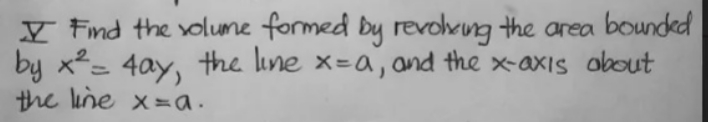 V Find the volume formed by revolving the area bounded
by x² = 4ay, the line x=a, and the x-axis about
the line x=a.